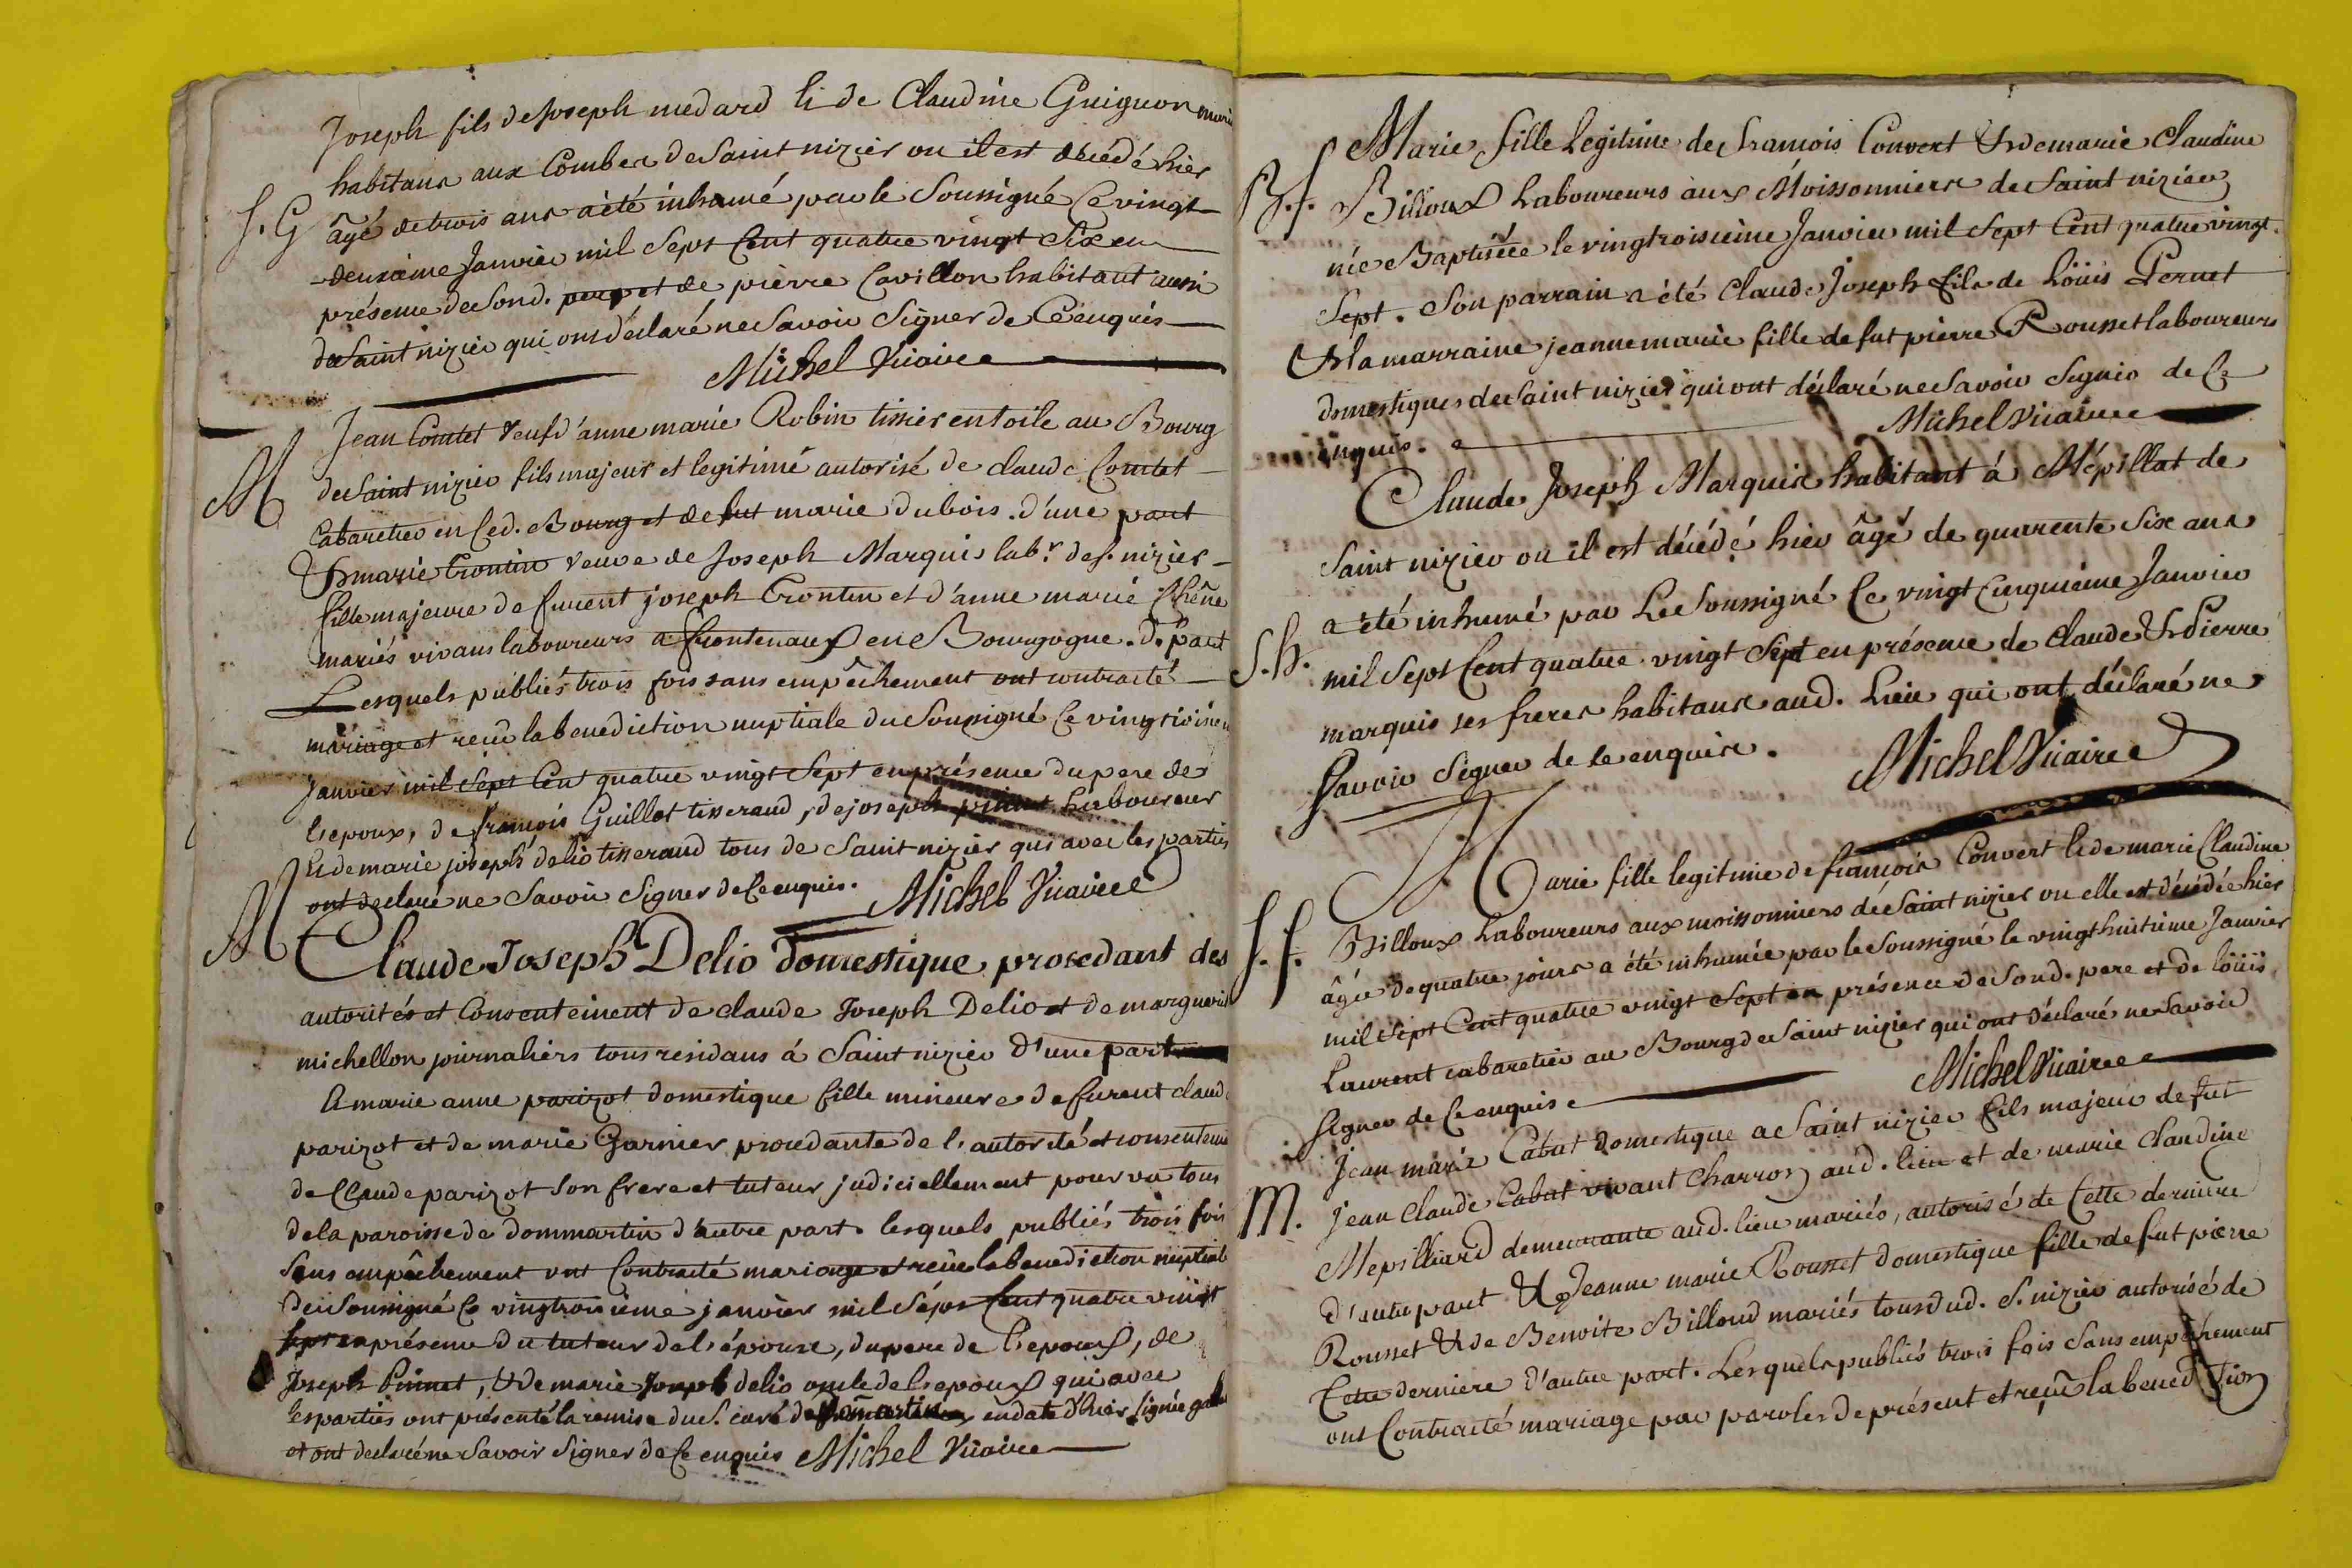 Joseph fils de Joseph medard & de Claudine Guignon
habitans aux Combes de Saint nizier ou il est décédé hier
S. G âgé de trois ans a été inhumé par le Soussigné Ce vingt
deuxième Janvier mil Sept Cent quatre vingt Six en
présence de Sond. pere et de pierre Cavillon habitant aussi
de Saint nizier qui ont déclaré ne Savoir Signer de Ce enquis
Michel Vicaire
Jean Comtet Veuf d'anne marie Robin tissier en toile au Bourg
M de Saint nizier fils majeur et legitime autorisé de claude Comtet
Cabaretier en Led. Bourg et de fut marie dubois. d'une part
Et marie Trontin veuve de Joseph Marquis labr. de S. nizier
fille majeure de furent joseph Trontin et d'anne marie Chêne
mariés vivans laboureurs a frontenaux en Bourgogne. D. part
Lesquels publiés trois fois sans empêchement ont contracté
mariage et reçu la benediction nuptiale du Soussigné Ce vingtroisieme
Janvier mil Sept Cent quatre vingt Sept en présence du pere de
l'epoux, de françois Guillot tisserand, de joseph pinnet laboureur
& de marie joseph delio tisserand tous de Saint nizier qui avec les parties
ont déclaré ne Savoir Signer de Ce enquis. Michel Vicaire
M Claude Joseph Delio domestique procedant des
autorités et Consentement de claude Joseph Delio et de marguerite
michellon journaliers tous residans á Saint nizier d'une part
& marie anne parizot domestique fille mineure de furent claude
parizot et de marie Garnier procedante de l'autorité et consentement
de Claude parizot Son frere et tuteur judiciellement pourvu tous
de la paroisse de dommartin d'autre part. lesquels publiés trois fois
Sans empêchement ont Contracté mariage et reçue la benediction nuptiale
du Soussigné Ce vingtroisième janvier mil Sept Cent quatre vingt
Sept en présence du tuteur de l'épouse, du pere de l'epoux, de
Joseph Pinnet, & de marie Joseph delio oncle de l'epoux qui avec
les parties ont présenté la remise du S. curé de dommartin en date d'hier Signée
et ont declaré ne Savoir Signer de Ce enquis Michel Vicaire
Marie fille Legitime de francois Convert & de marie Claudine
B. f. Billoux Laboureurs aux Moissonniers de Saint nizier
née Baptisée le vingtroisieme Janvier mil Sept Cent quatre vingt
Sept. Son parrain a été Claude Joseph fils de Loüis Pernet
& la marraine jeanne marie fille de fut pierre Rousset laboureurs
domestiques de Saint nizier qui ont déclaré ne Savoir Signer de Ce
enquis. Michel Vicaire
Claude Joseph Marquis habitant á Mépillat de
Saint nizier ou il est décédé hier âgé de quarente Six ans
a été inhumé par Le Soussigné Ce vingt Cinquième Janvier
S. h. mil Sept Cent quatre vingt Sept en présence de Claude & Pierre
marquis ses freres habitans aud. Lieu qui ont déclaré ne
Savoir Signer de Ce enquis. Michel Vicaire
Marie fille legitime de francois Convert & de marie Claudine
S. f. Billoux Laboureurs aux moissonniers de Saint nizier ou elle est décédée hier
âgée de quatre jours a été inhumée par le Soussigné le vingt huitieme Janvier
mil Sept Cent quatre vingt Sept en présence de Sond. pere et de loüis
Laurent cabaretier au Bourg de Saint nizier qui ont déclaré ne Savoir
Signer de Ce enquis Michel Vicaire
Jean marie Cabut domestique a Saint nizier fils majeur de fut
M. jean Claude Cabut vivant Charron aud. lieu et de marie claudine
Mepilliard demeurante aud. lieu mariés, autorisé de Cette derniere
d'autre part & Jeanne marie Rousset domestique fille de fut pierre
Rousset & de Benoite Billoud mariés tous dud. S. nizier autorisé de
Cette derniere d'autre part. Lesquels publiés trois fois Sans empêchement
ont Contracté mariage par paroles de présent et reçu la benediction